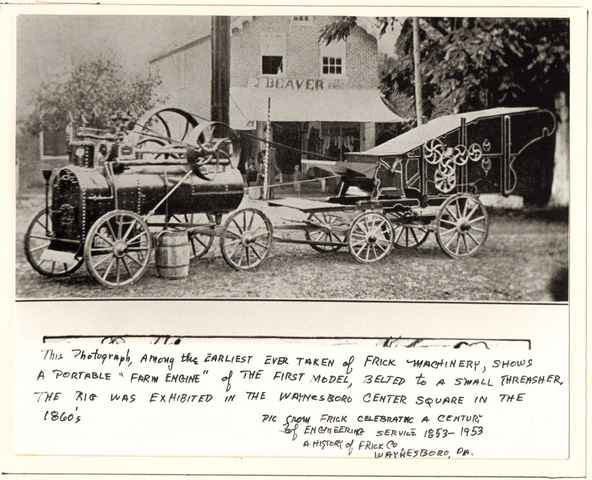 BEAVER
This Photograph, Among the EARLIEST EVER TAKEN of FRICK MACHINERY, SHOWS
A PORTABLE "FARM ENGINE" of THE FIRST MODEL, BELTED to A SMALL THRESHER.
THE RIG WAS EXHIBITED IN THE WAYNESBORO CENTER SQUARE IN THE
1860's
PIC FROM FRICK CELEBRATNG A CENTURY
of ENGINEERING SERVICE 1853-1953
A HISTORY of FRICK CO
WAYNESBORO, PA.